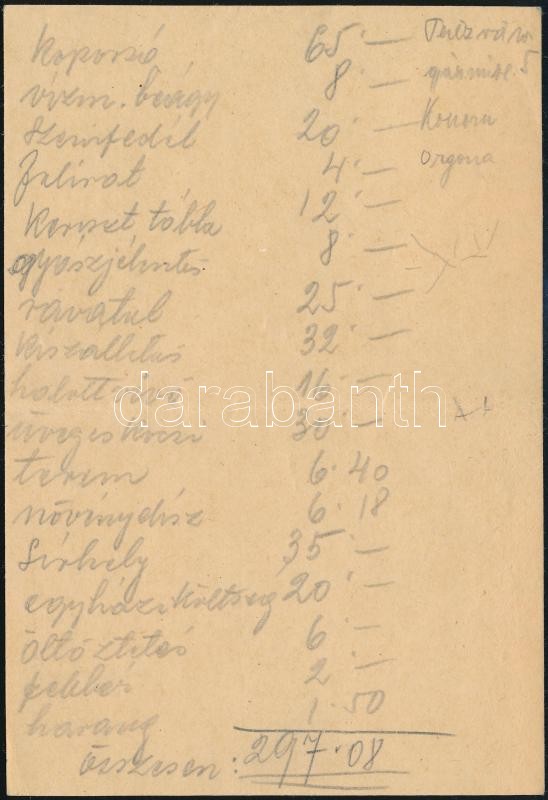 Koporsó 65·—
vízm. beágy 8·—
Szemfedél 20·—
Felirat 4·—
Kereszt tábla 12·—
gyászjelentés 8·—
ravatal 25·—
Kiszállitás 32·—
halott vivő 16·—
üveges kocsi 30·—
terem 6·40
növénydísz 6·18
Sírhely 35·—
egyházi költség 20·—
öltöztetés 6·—
2·—
harang 1·50
Összesen: 297·08
5
Koszoru
Orgona
darabanth